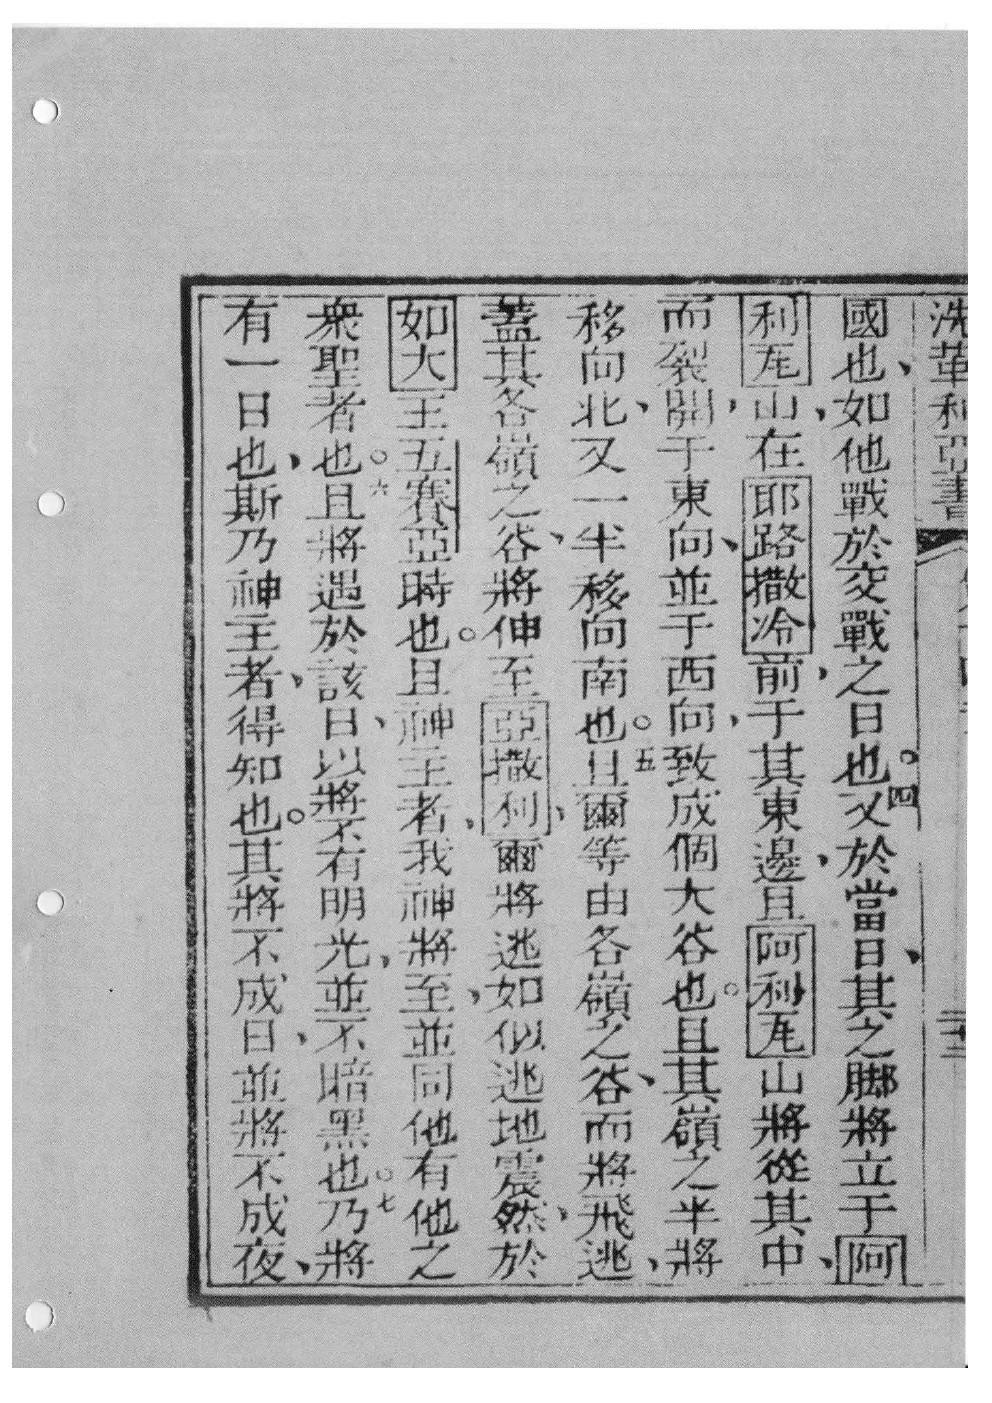 洗革利亞書
國也、如他戰於交戰之日也。四又於當日、其之脚將立于阿
利尾山、在耶路撒冷前、于其東邊、且阿利尾山將從其中、
而裂開、于東向、並于西向、致成個大谷也。且其嶺之半將
移向北、又一半移向南也。五且爾等由各嶺之谷、而將飛逃、
蓋其各嶺之谷、將伸至亞撒利、爾將逃如似逃地震然、於
如大王五賽亞時也。且神主者、我神將至、並同他有他之
衆聖者也。六且將遇於該日、以將不有明光、並不暗黑也。七乃將
有一日也、斯乃神主者、得知也。其將不成日、並將不成夜、